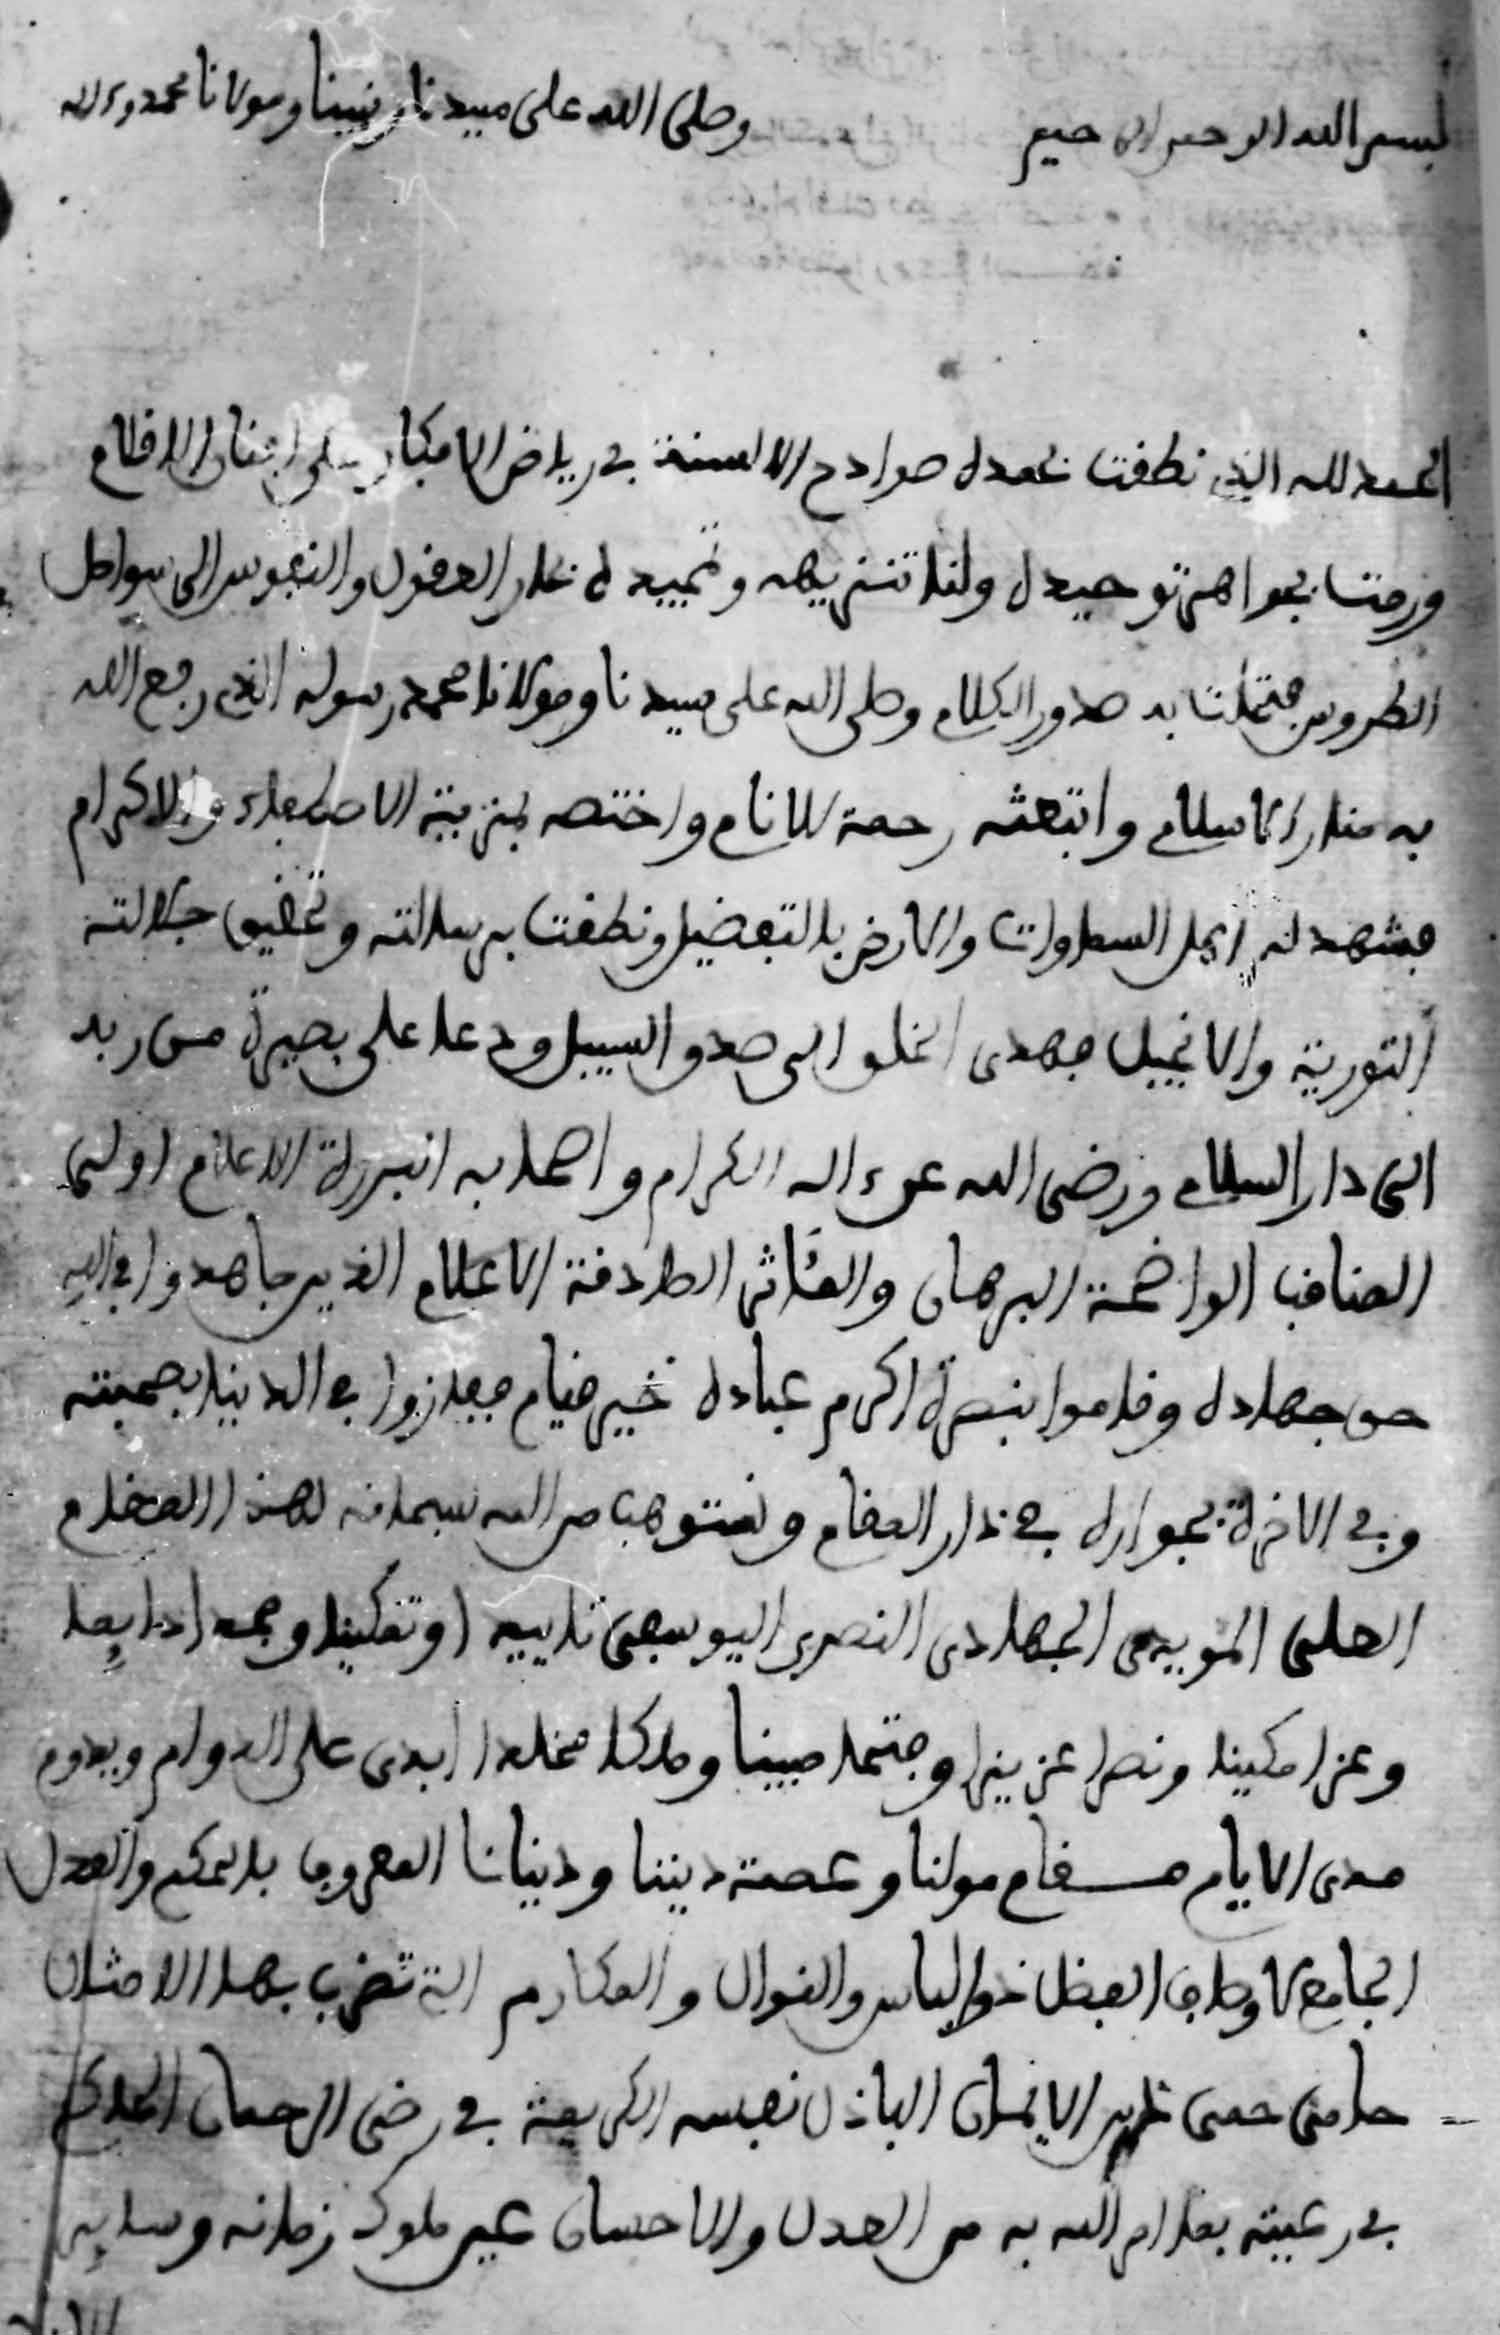 بسم الله الرحمن الرحيم وصلى الله على سيدنا ونبينا ومولانا محمد وءاله
الحمد لله الذي نطقت بحمده صوادح الالسنة في رياض الافكار على افنان الاقلام
ورمت بجواهر توحيده ولئالئ تنزيهه وتمجيده بحار العقول والنفوس الى سواحل
الطروس فتحلت به صدور الكلام وصلى الله على سيدنا ومولانا محمد رسوله الذي رفع الله
به منار الاسلام وابتعثه رحمة للانام واختصه بمزية الاصطفاء والاكرام
فشهد له اهل السماوات والارض بالتفضيل ونطقت برسالته وتحقيق جلالته
التورية والانجيل فهدى الخلق الى صدق السبيل ودعا على بصيرة من ربه
الى دار السلام ورضى الله عن ءاله الكرام واصحابه البررة الاعلام اولى
المناقب الواضحة البرهان والمئاثر الصادقة الاعلام الذين جاهدوا في الله
حق جهاده وقاموا بنصرة اكرم عباده خير قيام ففازوا في الدنيا بصحبته
وفي الاخرة بجواره في دار المقام ونستوهب من الله سبحانه لهذا المقام
العلى المويدى الجهادى النصرى اليوسفى تاييدا وتمكينا ومجدا دايما
وعزا مكينا ونصرا عزيزا وفتحا مبينا وملكا مخلدا ابدى على الدوام ويدوم
مدى الايام مقام مولنا وعصمة ديننا ودنيانا المعروف بالحكم والعدل
الجامع لاوصاف الفضل ذو الباس والنوال والمكارم التي تضرب بها الامثال
حامى حمى دين الايمان الباذل نفسه الكريمة في رضى الرحمان
في رعيته بما امر الله به من العدل والاحسان عين ملوك زمانه وساير